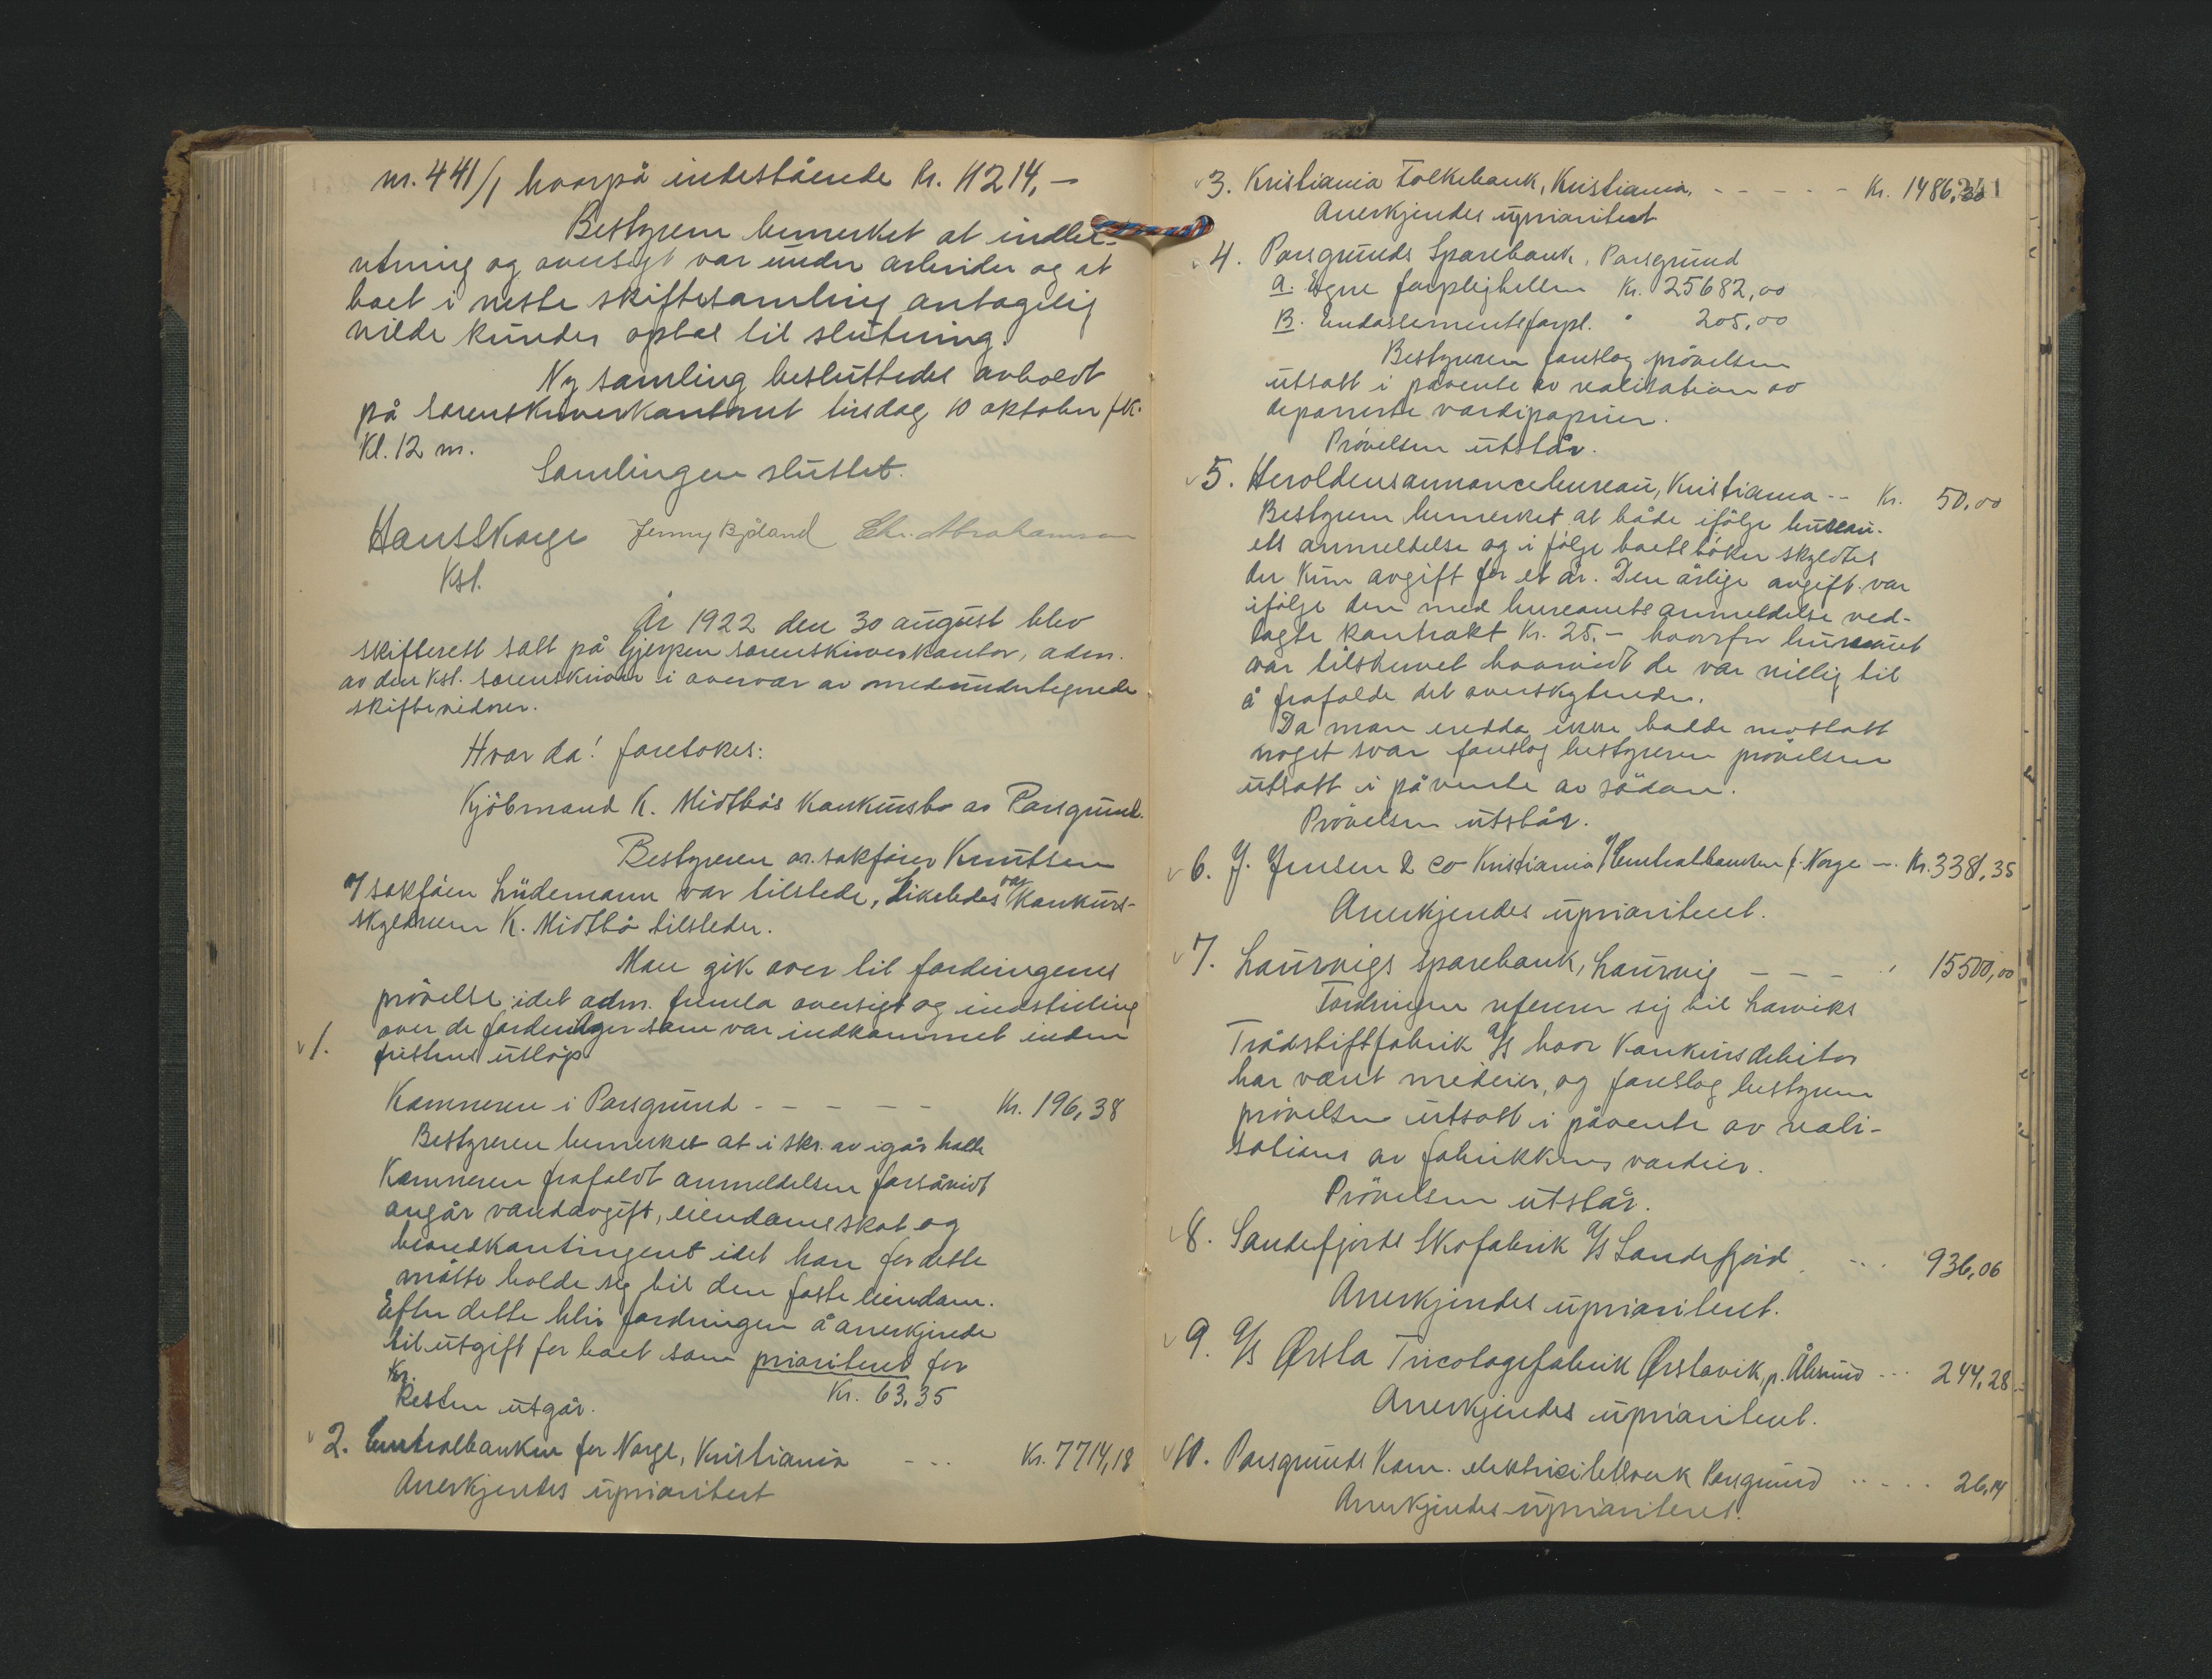 nr. 441/1 hvorpå indestående Kr. 11214,-
Bestyreren bemerket at indbe-
retning og oversigt var under arbeide og at
boet i neste skiftesamling antagelig
vilde kundes optas til slutning.
Ny samling besluttedes avholdt
på sorenskriverkontoret tirsdag 10 oktober fk.
Kl. 12 m.
Samlingen sluttet.
Hans Skarge Jenny Bjåland Chr. Abrahamsen
Kst.
År 1922 den 30 august blev
skifterett satt på Gjerpen sorenskriverkontor, adm.
av den Kst. sorenskriver i overvær av medundertegnede
skiftevidner.
Hvor da! foretokes:
Kjöbmand K. Midtbös Konkursbo av Porsgrund.
Bestyreren or. sakförer Knutsen
v/ sakförer Lüdemann var tilstede, Likeledes var Konkurs-
skyldneren K. Midtbö tilstede.
Man gik over til fordringenes
prövelse idet adm. fremla oversigt og indstilling
over de fordringer som var indkommet inden
fristens utlöp
1.
Kemneren i Porsgrund - - - - - Kr. 196,38
Bestyreren bemerket at i skr. av igår hadde
Kemneren frafaldt anmeldelsen forsåvidt
angår vandavgift, eiendomsskat og
brandkontingent idet han for dette
måtte holde sig til den faste eiendom.
Efter dette blir fordringen å anerkjende
til utgift for boet som prioritert for
Kr. Kr. 63,35
Resten utgår.
2. Centralbanken for Norge, Kristiania - - - Kr. 7714,18
Anerkjendes uprioritert
3. Kristiania Folkebank, Kristiania, - - - - - Kr. 1486,30
Anerkjendes uprioritert
4. Porsgrunds Sparebank, Porsgrund
a. Egne forpligtelser Kr. 25682,00
B. Endossementsforpl. " 205,00
Bestyreren foreslog prövelsen
utsatt i påvente av realisation av
deponerte værdipapirer.
Prövelsen utstår.
5. Heroldens annoncebureau, Kristiania -- Kr. 50,00
Bestyreren bemerket at både ifölge bureau-
ets anmeldelse og i fölge boets böker skyldtes
der kun avgift for et år. Den årlige avgift var
ifölge den med bureauets anmeldelse ved-
lagte kontrakt Kr. 25,- hvorfor bureauet
var tilskrevet hvorvidt de var villig til
å frafalde det overskytende.
Da man endda ikke hadde mottatt
noget svar foreslog bestyreren prövelsen
utsatt i påvente av sådan.
Prövelsen utstår.
6. J. Jensen & Co Kristiania v/ Centralbanken f. Norge -- Kr. 3381,35
Anerkjendes uprioritert.
7. Laurvigs Sparebank, Laurvig - - - " 15500,00
Fordringen refererer sig til Larviks
Trådstiftfabrik A/S hvor Konkursdebitor
har været medeier, og foreslog bestyreren
prövelsen utsatt i påvente av reali-
sations av fabrikkens værdier.
Prövelsen utstår.
8. Sandefjords Skofabrik A/S Sandefjord - - - 936,06
Anerkjendes uprioritert.
9. A/S Ørsta Tricotagefabrik Ørstavik, p. Ålesund - - - 244,28
Anerkjendes uprioritert.
10. Porsgrunds Kom. elektricitetsverk Porsgrund - - - - - 26,14
Anerkjendes uprioritert.